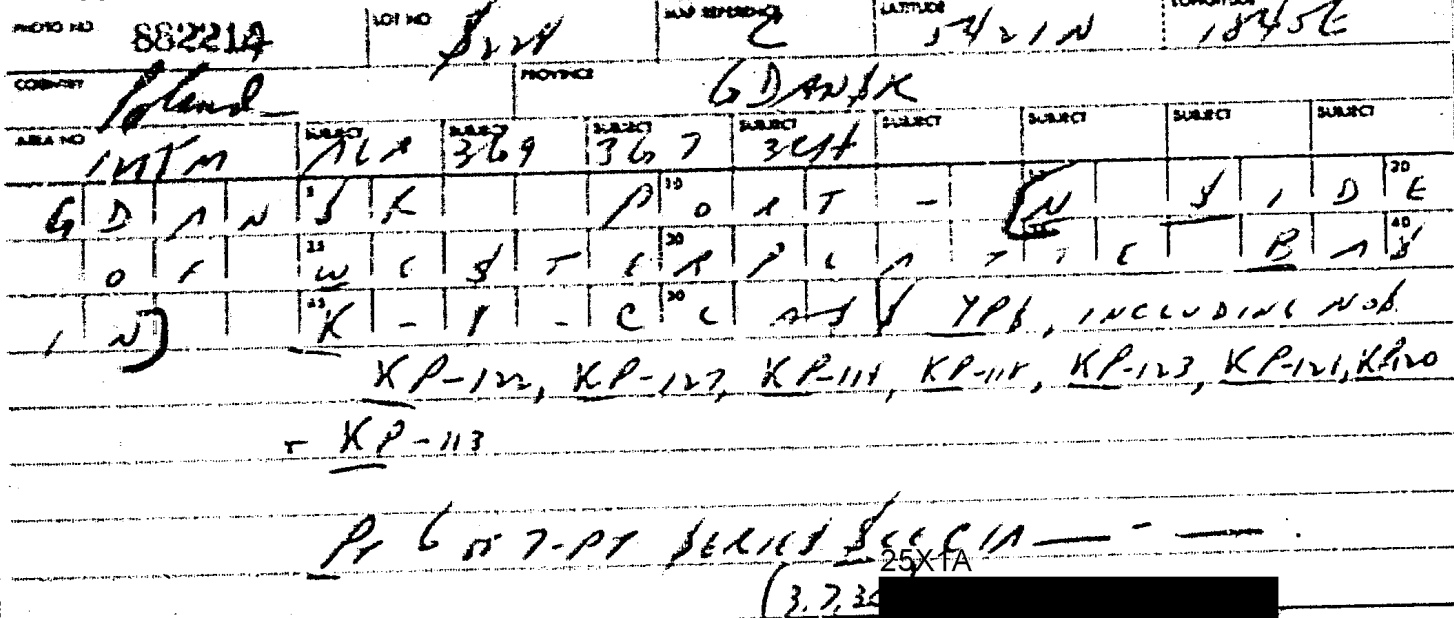 PHOTO NO 882214 LOT NO MAP REFERENCE C LATITUDE 5421N LONGITUDE 1845E
COUNTRY Poland PROVINCE GDANSK
AREA NO INTM SUBJECT SUBJECT 369 SUBJECT 367 SUBJECT SUBJECT SUBJECT SUBJECT SUBJECT
GDANSK PORT - (N SIDE
OF WESTERPLATTE BAS
IN) K-8-CLASS YPS, INCLUDING NOS
KP-122, KP-127, KP-123, KP-121, KP-120
KP-113
PT 6 OF 7-PT SERIES SEE CIA — - — .
25X1A